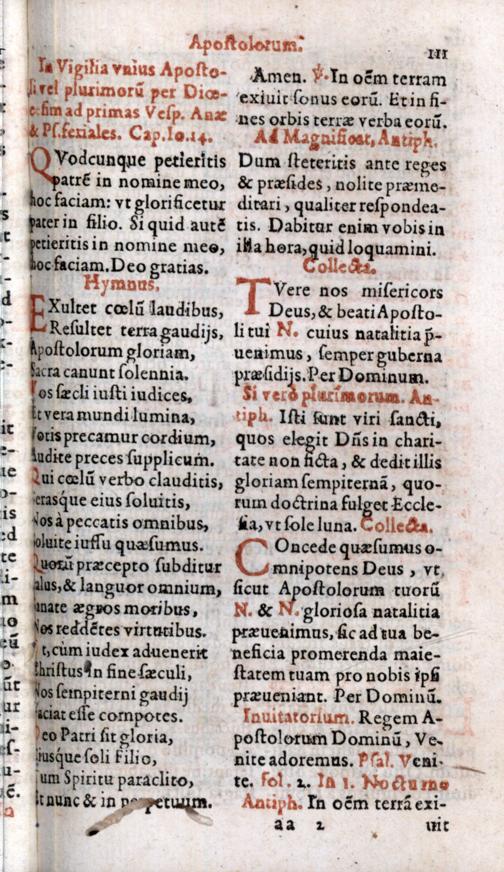 Apostolorum.
III
In Vigilia vnius Aposto-
si vel plurimorũ per Diœ-
cesim ad primas Vesp. Anæ
& Ps. feriales. Cap. Io. 14.
QVodcunque petieritis
patrẽ in nomine meo,
hoc faciam: vt glorificetur
pater in filio. Si quid autẽ
petieritis in nomine meo,
hoc faciam. Deo gratias.
Hymnus.
EXultet cœlũ laudibus,
Resultet terra gaudijs,
Apostolorum gloriam,
Sacra canunt solennia.
Vos sæcli iusti iudices,
Et vera mundi lumina,
Votis precamur cordium,
Audite preces supplicum.
Qui cœlũ verbo clauditis,
Serasque eius soluitis,
Nos à peccatis omnibus,
Soluite iussu quæsumus.
Quorũ præcepto subditur
Salus, & languor omnium,
Sanate ægros moribus,
Nos reddẽtes virtutibus.
Vt, cùm iudex aduenerit
Christus in fine sæculi,
Nos sempiterni gaudij
Faciat esse compotes.
Deo Patri sit gloria,
Eiusque soli Filio,
Cum Spiritu paraclito,
Et nunc & in perpetuum.
Amen. ℣. In oẽm terram
exiuit sonus eorũ. Et in fi-
nes orbis terræ verba eorũ.
Ad Magnificat, Antiph.
Dum steteritis ante reges
& præsides, nolite præme-
ditari, qualiter respondea-
tis. Dabitur enim vobis in
illa hora, quid loquamini.
Collecta.
TVere nos misericors
Deus, & beati Aposto-
li tui N. cuius natalitia p̃-
uenimus, semper guberna
præsidijs. Per Dominum.
Si verò plurimorum. An-
tiph. Isti sunt viri sancti,
quos elegit Dñs in chari-
tate non ficta, & dedit illis
gloriam sempiternã, quo-
rum doctrina fulget Eccle-
sia, vt sole luna. Collecta.
COncede quæsumus o-
mnipotens Deus, vt,
sicut Apostolorum tuorũ
N. & N. gloriosa natalitia
præuenimus, sic ad tua be-
neficia promerenda maie-
statem tuam pro nobis ipsi
præueniant. Per Dominũ.
Inuitatorium. Regem A-
postolorum Dominũ, Ve-
nite adoremus. Psal. Veni-
te. fol. 2. In 1. Nocturno
Antiph. In oẽm terrã exi-
aa 2
uit